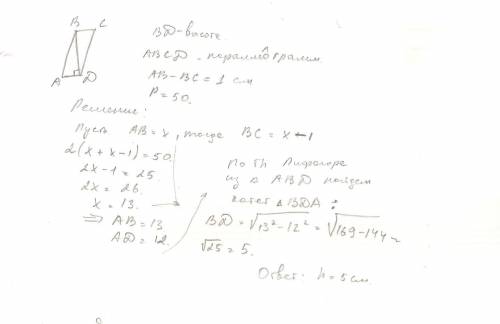 B C
A D
BD - высота.
ABCD - параллелограмм
AB - BC = 1 см
P = 50.
Решение:
Пусть AB = x, тогда BC = x - 1
2(x + x - 1) = 50
2x - 1 = 25.
2x = 26.
x = 13.
⇒ AB = 13
AD = 12.
По Th Пифагора
из △ ABD найдем
катет △ BDA:
BD = √13² - 12² = √169 - 144 =
√25 = 5.
Ответ: h = 5 см.